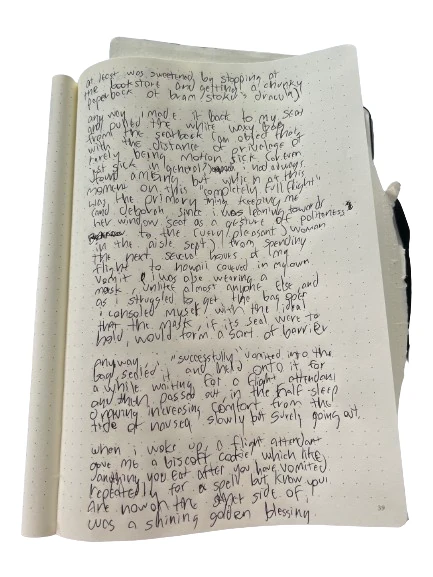 at least was sweetened by stopping at
the bookstore and getting a chunky
paperback of bram stoker's dracula)
anyway i made it back to my seat
and pulled the white waxy bag
from the seatback (an object that,
with the distance of privilege of
rarely being motion sick (or even
just sick in general) had always
found amusing but which at this
moment on this "completely full flight"
was the primary thing keeping me
(and deborah since i was leaning towards
her window seat as a gesture of politeness
to the (very pleasant) woman
in the aisle seat) from spending
the next several hours of my
flight to hawaii covered in my own
vomit. i was also wearing a
mask, unlike almost anyone else and
as i struggled to get the bag open
i consoled myself with the idea
that the mask, if its seal were to
hold, would form a sort of barrier
anyway, i "successfully" vomited into the
bag, sealed it and held onto it for
a while waiting for a flight attendant
and then passed out in the half-sleep
drawing increasing comfort from the
tide of nausea slowly but surely going out.
when i woke up, a flight attendant
gave me a biscoff cookie which like
anything you eat after you have vomited
repeatedly for a spell but know you
are now on the other side of,
was a shining golden blessing